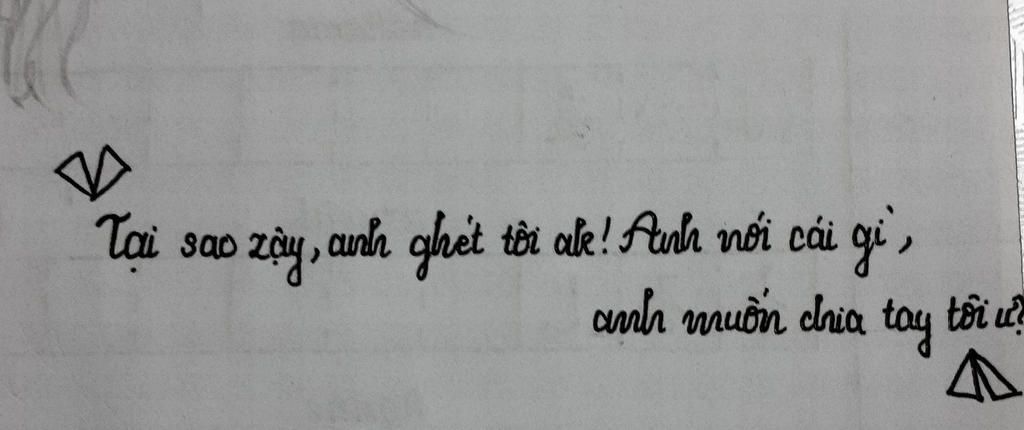 Tại sao zậy, anh ghét tôi ak! Anh nói cái gì,
anh muốn chia tay tôi ư?